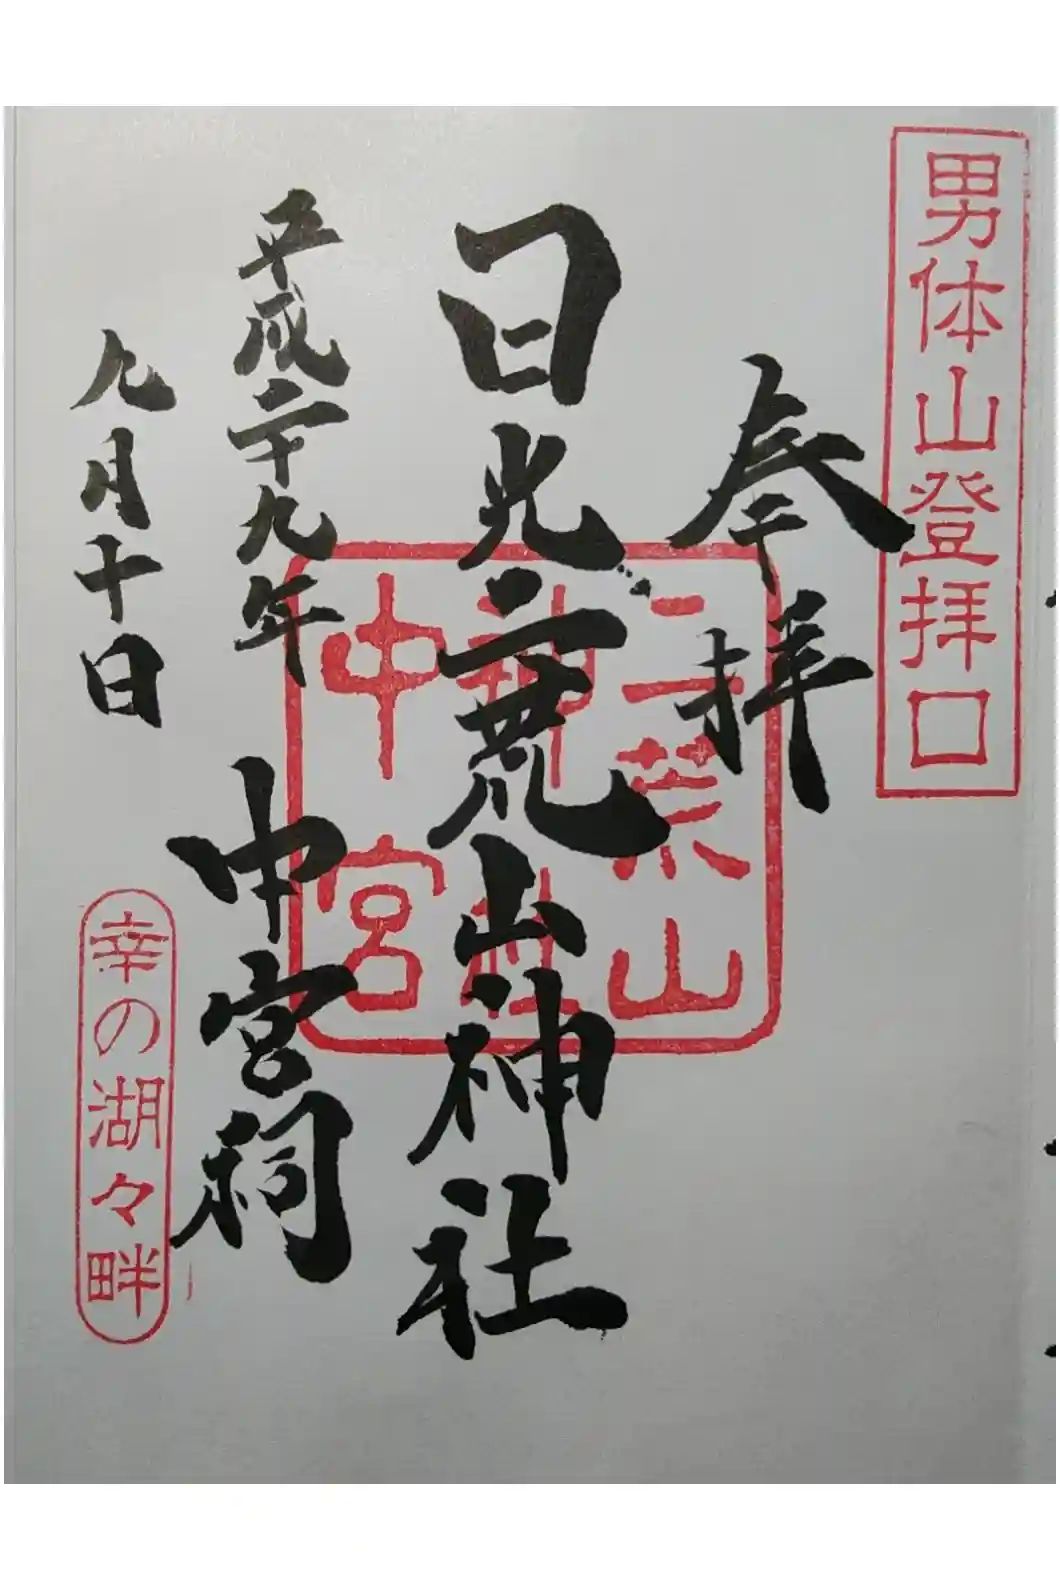 男体山登拝口
奉拝
二荒山
神社
中宮
日光二荒山神社
中宮祠
平成二十九年
九月十日
幸の湖々畔